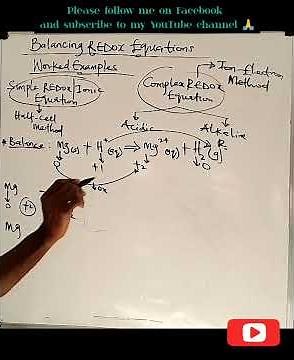 Please follow me on Facebook
and subscribe to my YouTube channel 🙏
Balancing REDOX Equations
Worked Examples
Ion-Electron
Method
Simple REDOX Ionic
Equation
Complex REDOX
Equation
Half-cell
method
Acidic
Alkaline
* Balance: Mg(s) + H⁺(aq) → Mg²⁺(aq) + H₂(g)
R
0 +1 +2 0
ox
Mg
0 +2
Mg